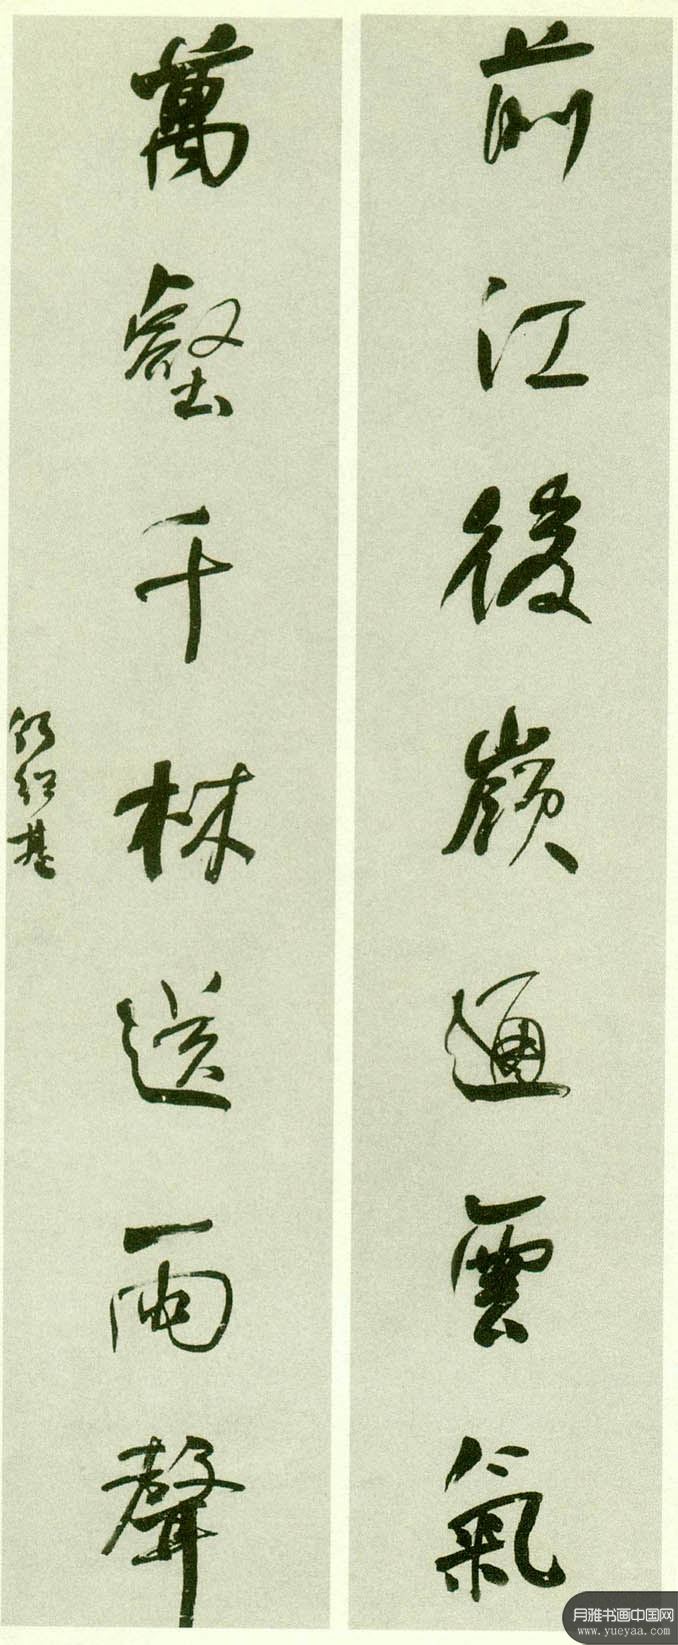 前江後嶺通雲氣
萬壑千林送雨聲
何紹基
月雅书画中国网
www.yueyaa.com